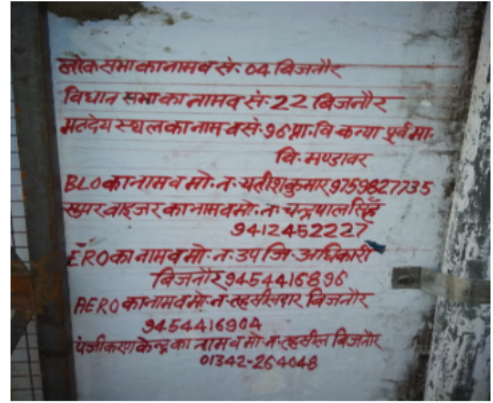 लोक सभा का नाम व सं· 04 बिजनौर
विधान सभा का नाम व सं· 22 बिजनौर
मतदेय स्थल का नाम व सं· 96 प्रा· वि· कन्या पूर्व मा·
वि· मण्डावर
BLO का नाम व मो· न· यतीश कुमार 9759827735
सुपरवाइजर का नाम व मो· न· चन्द्रपाल सिंह
9412452227
ERO का नाम व मो· न· उप जि· अधिकारी
बिजनौर 9454416896
AERO का नाम व मो· न· तहसीलदार बिजनौर
9454416904
पंजीकरण केन्द्र का नाम व मो· न· तहसील बिजनौर
01342-264048